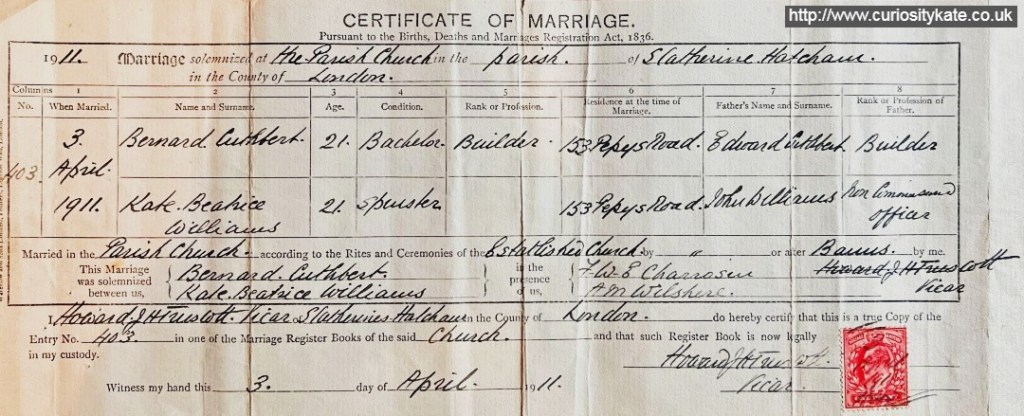 http://www.curiositykate.co.uk
CERTIFICATE OF MARRIAGE.
Pursuant to the Births, Deaths and Marriages Registration Act, 1836.
1911. Marriage solemnized at the Parish Church in the parish. of S Catherine Hatcham.
in the County of London.
Columns 1 2 3 4 5 6 7 8
No. When Married. Name and Surname. Age. Condition. Rank or Profession. Residence at the time of Marriage. Father's Name and Surname. Rank or Profession of Father.
3. Bernard Cuthbert. 21. Bachelor. Builder. 153 Pepys Road. Edward Cuthbert. Builder
403. April.
1911. Kate. Beatrice 21. Spinster. 153 Pepys Road. John Williams Non Commissioned
Williams officer
Married in the Parish Church according to the Rites and Ceremonies of the Established Church by " or after Banns. by me.
This Marriage was solemnized between us, Bernard. Cuthbert. in the presence of us, F. W. E Howard J H Truscott
Kate. Beatrice Williams A M Wilshere. Vicar
I, Howard. J H Truscott. Vicar of S Catherines Hatcham in the County of London. do hereby certify that this is a true Copy of the
Entry No. 403. in one of the Marriage Register Books of the said Church. and that such Register Book is now legally
in my custody. Howard J H Truscott.
Witness my hand this 3. day of April. 1911. Vicar.